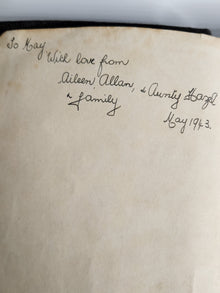 To May
With love from
Aileen, Allan, & Aunty Hazel
& family
May 1943.